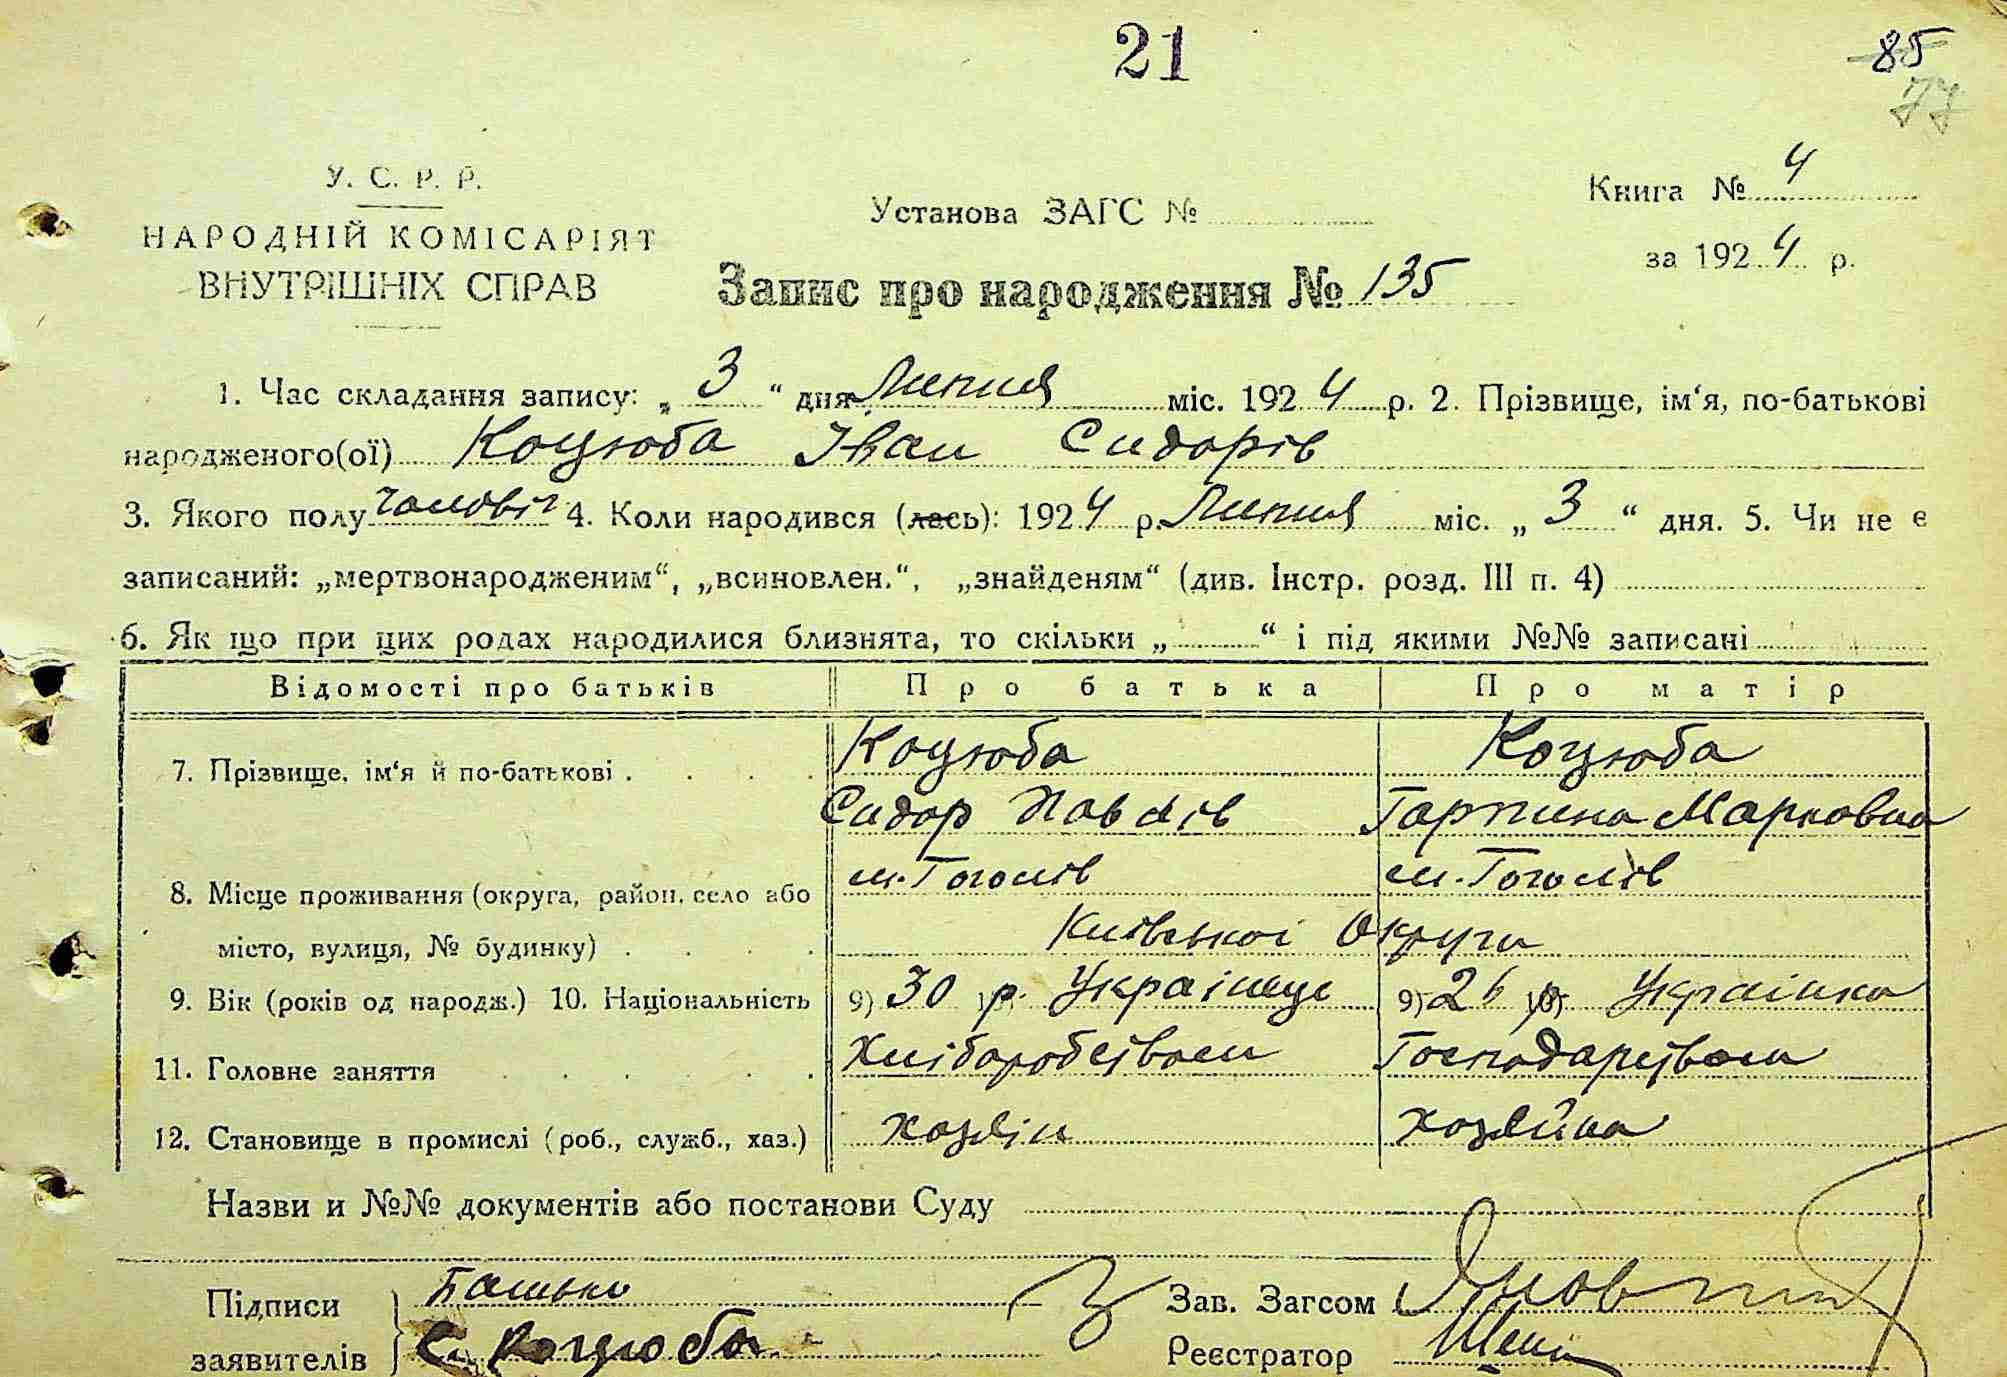 21
85
77
У. С. Р. Р.
НАРОДНІЙ КОМІСАРІЯТ
ВНУТРІШНІХ СПРАВ
Установа ЗАГС №
Книга № 4
за 1924 р.
Запис про народження № 135
1. Час складання запису: „ 3 “ дня Липня міс. 1924 р. 2. Прізвище, ім‘я, по-батькові
народженого(ої) Коцюба Іван Сидорів
3. Якого полу чоловіч 4. Коли народився (лась): 1924 р. Липня міс. „ 3 “ дня. 5. Чи не є
записаний: „мертвонародженим“, „всиновлен.“, „знайденям“ (див. Інстр. розд. III п. 4)
6. Як що при цих родах народилися близнята, то скільки „ “ і під якими №№ записані
Відомості про батьків Про батька Про матір
7. Прізвище, ім‘я й по-батькові . . . . Коцюба Коцюба
Сидор Павлів Гарпина Марковна
8. Місце проживання (округа, район, село або м. Гоголів м. Гоголів
місто, вулиця, № будинку) . . . Київської Округи
9. Вік (років од народж.) 10. Національність 9) 30 р. Українець 9) 26 р. Українка
11. Головне заняття . . . . . Хліборобством Господарством
12. Становище в промислі (роб., служб., хаз.) хозяін хозяйка
Назви и №№ документів або постанови Суду
Підписи Батько Зав. Загсом
заявителів С. Коцюба Реєстратор